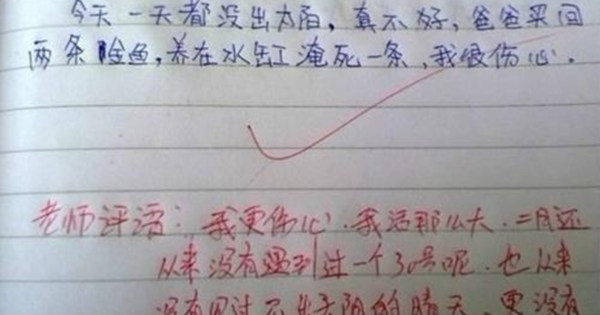 今天一天都没出太阳，真不好，爸爸买回
两条金鱼，养在水缸淹死一条，我很伤心。
老师评语：我更伤心．我活那么大．二月还
从来没有遇到过一个30号呢．也从来
没有见过不出太阳的晴天．更没有